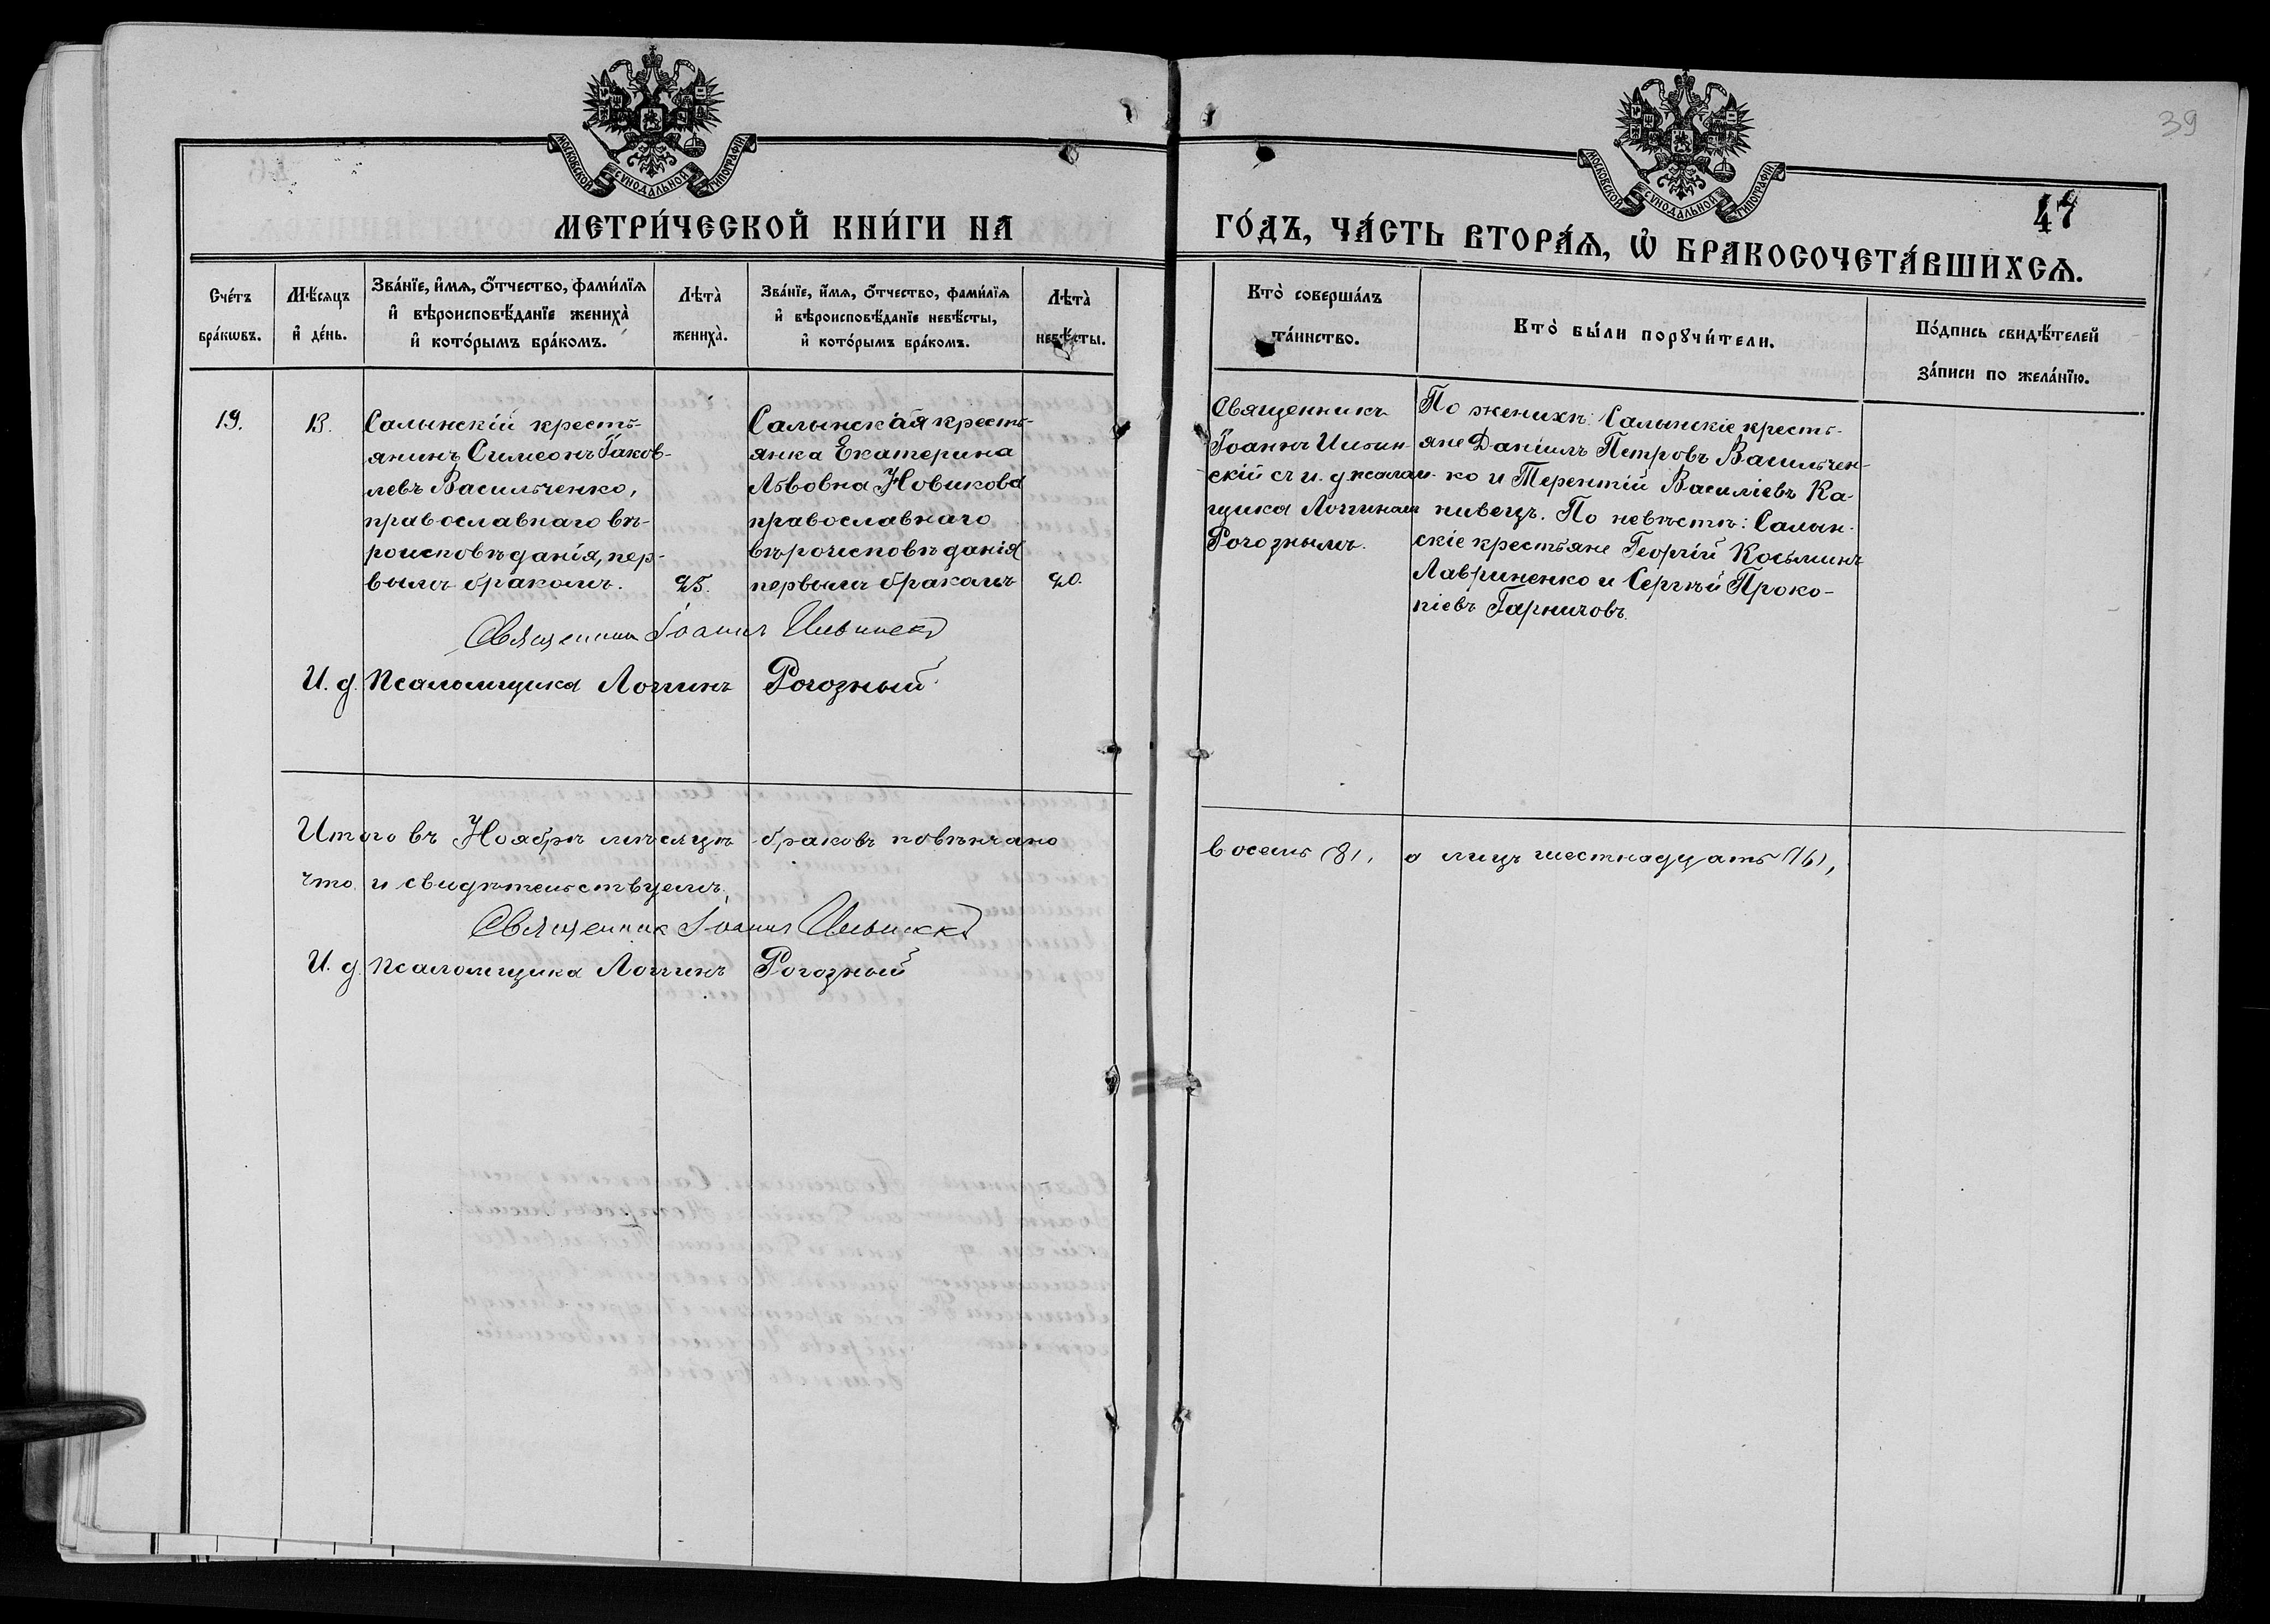 39
47
МОСКОВСКОЙ СѴНОДАЛЬНОЙ ТИПОГРАФІИ
МОСКОВСКОЙ СѴНОДАЛЬНОЙ ТИПОГРАФІИ
МЕТРИ́ЧЕСКОЙ КНИ́ГИ НА
ГО́ДЪ, ЧА́СТЬ ВТОРА́Ѧ, Ѡ БРАКОСОЧЕТА́ВШИХСѦ.
Сче́тъ
бра́кѡвъ.
Мѣ́сѧцъ
и҆ де́нь.
Зва́нїе, и҆́мѧ, ѻ҆́тчество, фами́лїѧ
и҆ вѣроисповѣ́данїе жениха̀
и҆ кото́рымъ бра́комъ.
Лѣта̀
жениха̀.
Зва́нїе, и҆́мѧ, ѻ҆́тчество, фами́лїѧ
и҆ вѣроисповѣ́данїе невѣ́сты,
и҆ кото́рымъ бра́комъ.
Лѣта̀
невѣ́сты.
Кто̀ соверша́лъ
та́инство.
Кто̀ бы́ли порꙋчи́тели.
По́дпись свидѣ́телей
за́писи по жела́нїю.
19.
13.
Салынскій кресть-
янинъ Симеонъ Іаков-
левъ Васильченко,
православнаго вѣ-
роисповѣданія, пер-
вымъ бракомъ.
25.
Салынская кресть-
янка Екатерина
Львовна Новикова
православнаго
вѣроисповѣданія
первымъ бракомъ
20.
Священникъ
Іоаннъ Ильин-
скій съ и. д. псалом-
щика Логгиномъ
Рогознымъ.
По женихѣ: Салынскіе кресть-
яне Даніилъ Петровъ Васильчен-
ко и Терентій Василіевъ Ка-
пивецъ. По невѣстѣ: Салын-
скіе крестьяне Георгій Косьминъ
Лавриненко и Сергѣй Проко-
піевъ Гарничовъ.
Священникъ Іоаннъ Ильинскій
И. д. псаломщика Логгинъ Рогозный
Итого въ Ноябрѣ мѣсяцѣ браковъ повѣнчано восемь (8), а лицъ шестнадцать (16),
что и свидѣтельствуемъ.
Священникъ Іоаннъ Ильинскій
И. д. псаломщика Логгинъ Рогозный